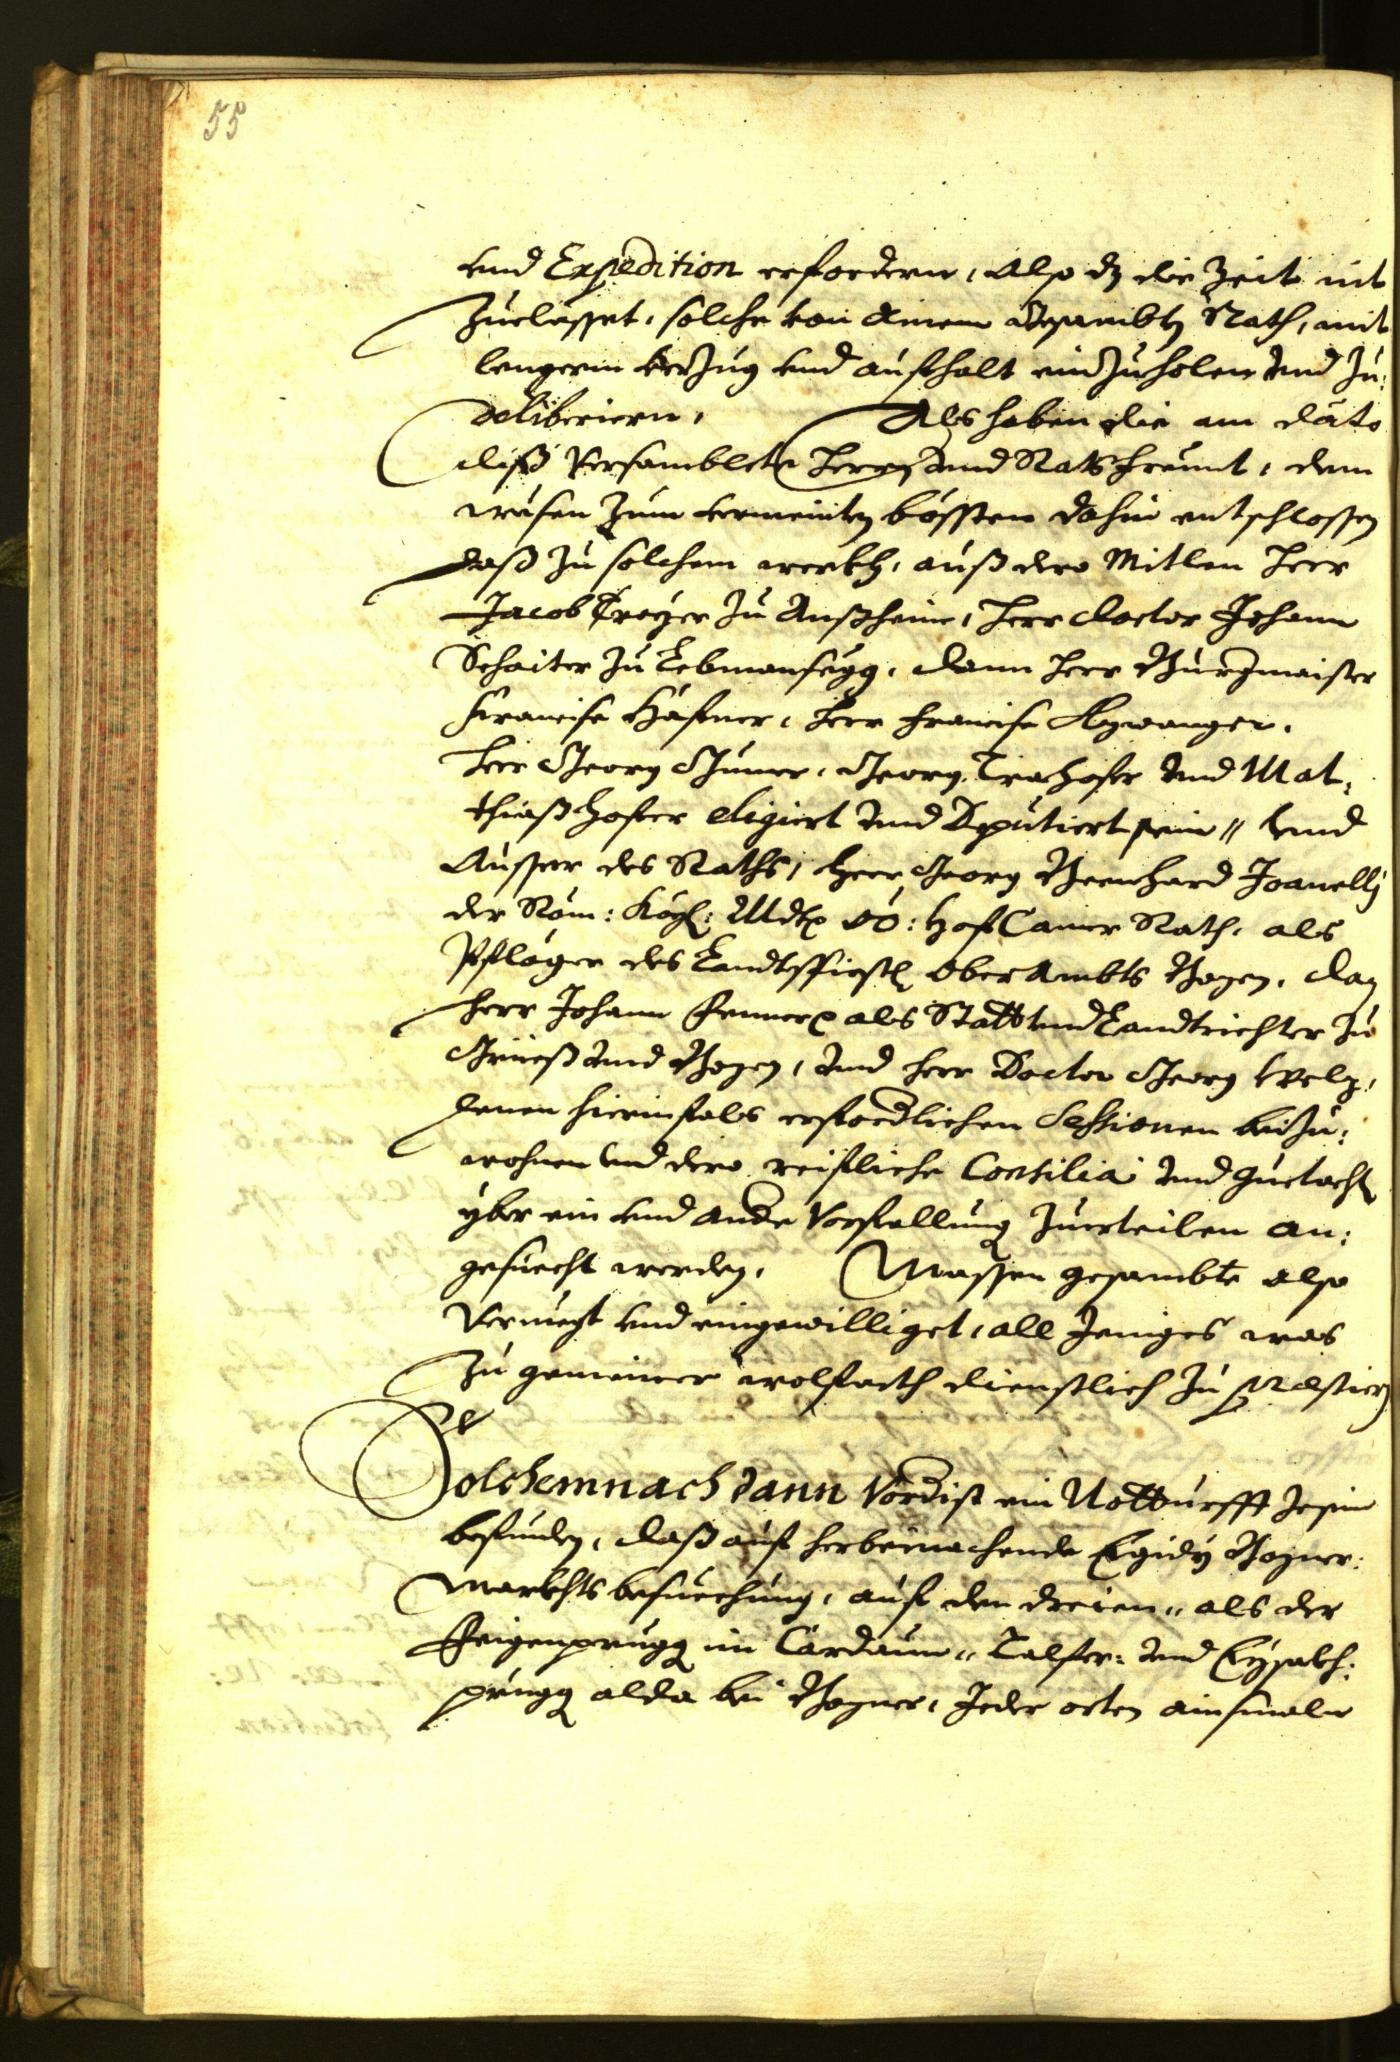 55
vnd Expedition erfordern, Also dz die Zeit nit
Zuelasset, solche von Ainem Gesambten Rath, mit
lengerm verzug vnd aufhalt einzuholen vnd Zu:
deliberiern, Als haben die am dato
diß Versamblete Herrn vnd Ratsfreunt, dem
wesen Zum vermeinten bössten dahin entschlossen
daß Zu solchem werkh, auß dero Mitlen Herr
Jacob Troyer Zu Außheim, Herr doctor Johann
Schaiter Zu Lebmansegg, dann Herr Burgmaister
Francisc Hafner, Herr Francisc
Herr Georg Gumer, Georg Trachofer vnd Mat,
thiaß Hofer eligiert vnd Deputiert sein // vnd
Ausser des Raths, Herr Georg Bernhard Joanelli
der Röm: Köyl: Mdt oö: Hof Camer Rath, als
Pfleger des Landtsfirstl Ober Ambts Bozen, dan
Herr Johann Fenner als Statt vnd Landtrichter zu
Grieß vnd Bozen, vnd Herr Doctor Georg Welz,
denen hierinfals erfordlichen Sessionen beizu:
wohnen vnd dero reifliche Consilia vnd Guetacht
yber ein vnd ander Vorfallung Zuerteilen an:
gesuecht werden, Massen gesambte also
Vernuegt vnd eingewilliget, all Jeniges was
Zu gemeiner wolfarth dienstlich Zu praestiern
Solchemnach dann Vordist ein Notturfft Zesein
befunden, daß auf herbeinachende Egidy Bozner:
Markhts besuechung, auf den dreien // als der
Feigenprugg im Cardaun // Talfer: vnd Eysakh:
prugg alda bei Bozner, Jeder orten ainsmaln